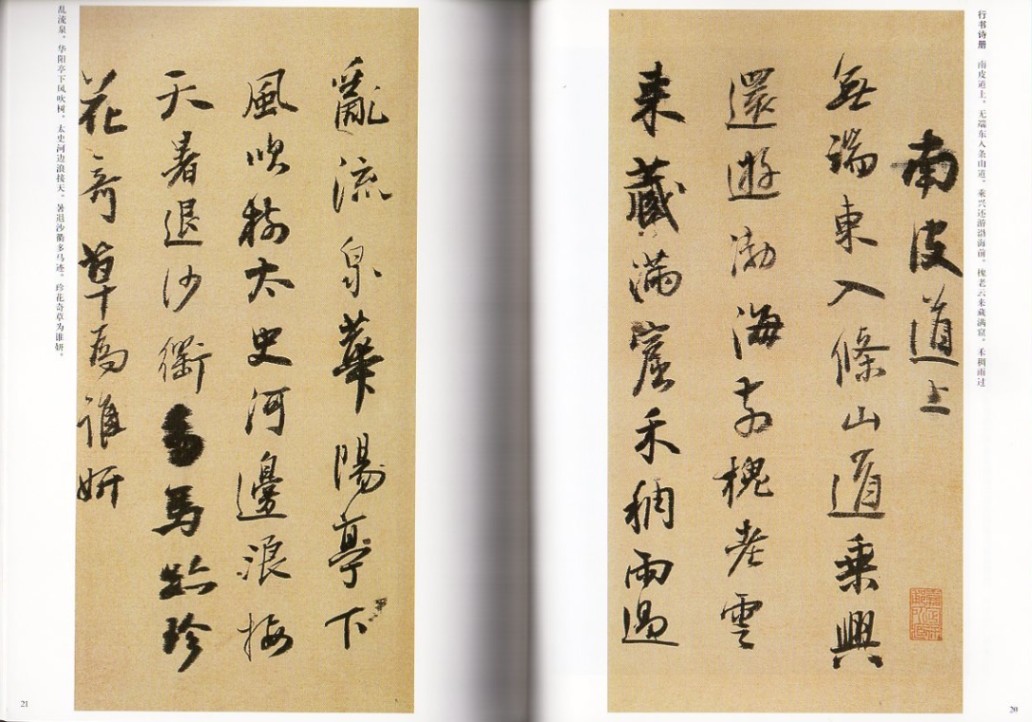 行书诗册　南皮道上。无端东入条山道，乘兴还游渤海前。槐老云来藏满窟，禾稠雨过
南皮道上
無端東入條山道乘興
還遊渤海前槐老雲
來藏滿窟禾稠雨過
20
亂流泉華陽亭下
風吹樹太史河邊浪接
天暑退沙衢多馬跡珍
花奇草為誰妍
乱流泉。华阳亭下风吹树，太史河边浪接天。暑退沙衢多马迹，珍花奇草为谁妍。
21